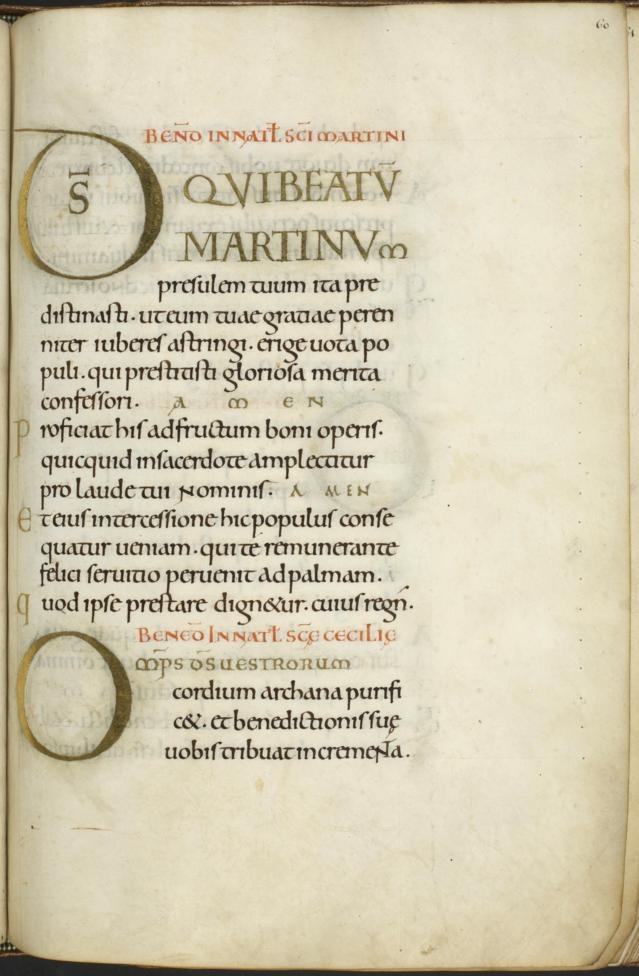 60
BEN̄D IN NAT̄L SC̄I MARTINI
DS̄ QVI BEATV̄
MARTINVM
presulem tuum ita pre
distinasti. ut eum tuae gratiae peren
niter iuberes astringi. erige uota po
puli. qui prestitisti gloriosa merita
confessori. A M E N
Proficiat his ad fructum boni operis.
quicquid in sacerdote amplectitur
pro laude tui Nominis. A MEN
Et eius intercessione hic populus conse
quatur ueniam. qui te remunerante
felici seruitio peruenit ad palmam.
quod ipse prestare dign&ur. cuius regn̄.
BENED̄ IN NAT̄L SC̄Ę CECILIĘ
OM̄PS D̄S UESTRORUM
cordium archana purifi
c&. et benedictionis suę
uobis tribuat incremeNTa.